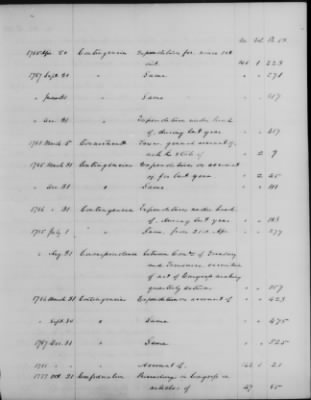 No. Vol. Pa. 59.
1785 Apr. 20 Contingencies Expenditures for since 1st
Oct. 141 1 223
1787 Sept. 30 " Same " " 571
" " Same " " 517
" Dec. 31 " Expenditures under head
of, during last year " " 517
1781 March 5 Commitment general account of,
" 2 9
1785 March 31 Contingencies Expenditures on account
of for last year " 2 25
" Dec. 31 " Same " " 101
1786 " 31 Contingencies Expenditures under head
of, during last year " " 183
1785 July 1 " Same, from 21st Apr. " " 277
" Aug. 31 Correspondence between Com'rs of Treasury
and Treasurer
of act of Congress making
quarterly returns " " 357
1786 March 31 Contingencies Expenditures on account of " " 423
" Sept. 30 " Same " " 475
1787 Dec. 31 " Same " " 525
1781 " " Account of. 1 21
1777 Oct. 31 Confederation Proceedings in Congress on
articles of 47 65